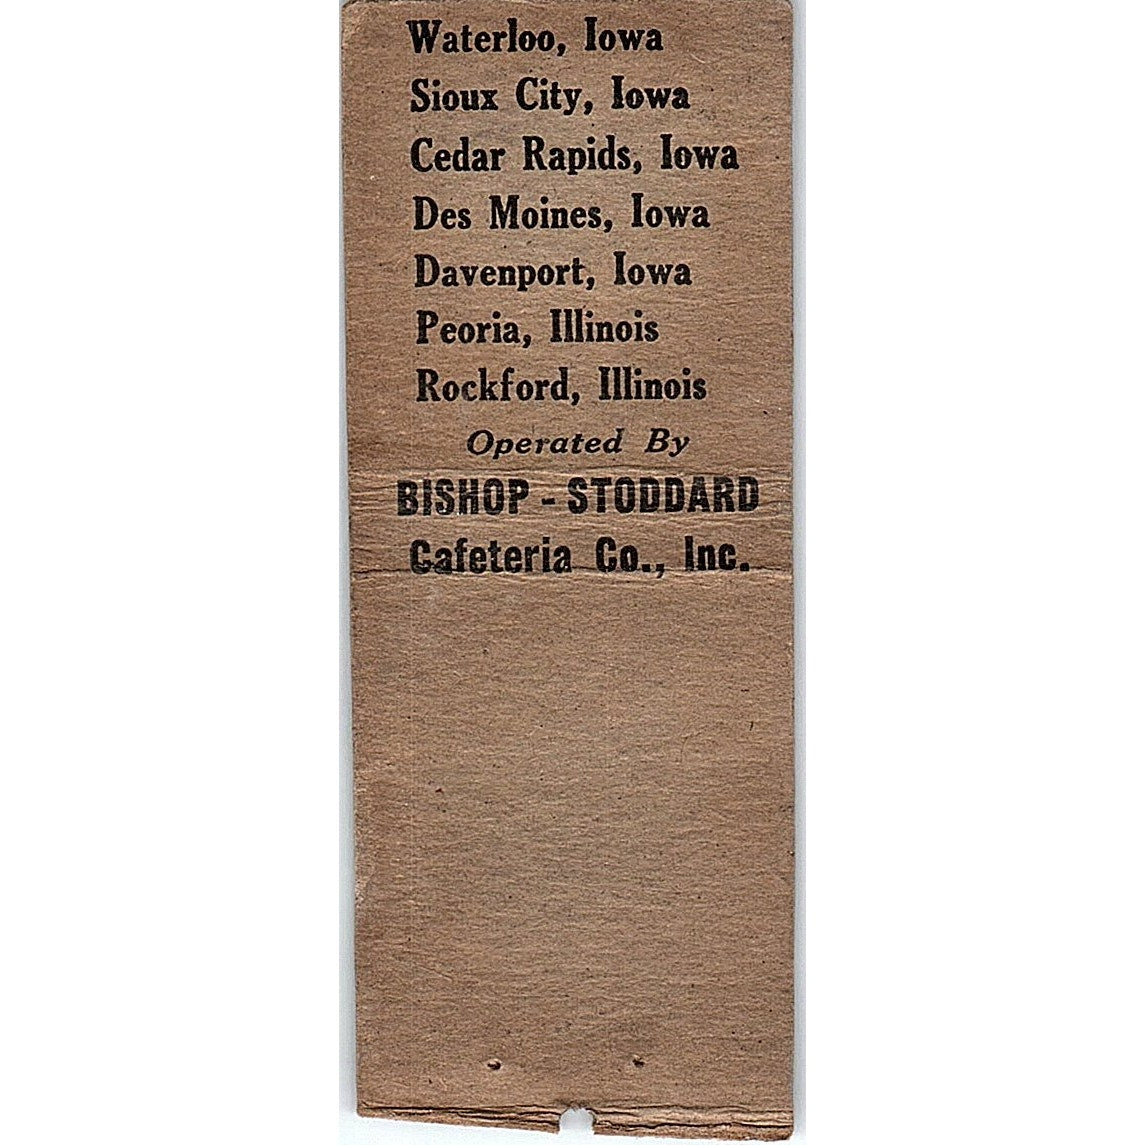 Waterloo, Iowa
Sioux City, Iowa
Cedar Rapids, Iowa
Des Moines, Iowa
Davenport, Iowa
Peoria, Illinois
Rockford, Illinois
Operated By
BISHOP - STODDARD
Cafeteria Co., Inc.